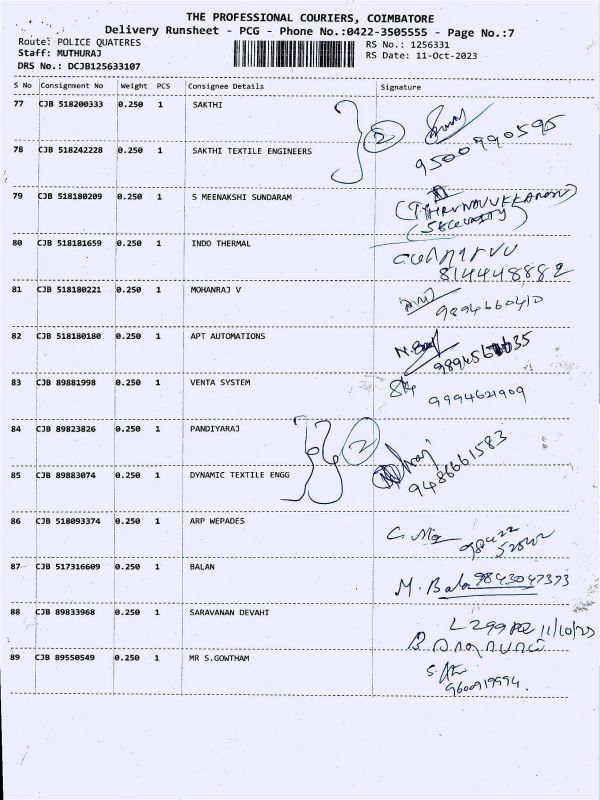 THE PROFESSIONAL COURIERS, COIMBATORE
Delivery Runsheet - PCG - Phone No.:0422-3505555 - Page No.:7
Route: POLICE QUATERES
RS No.: 1256331
Staff: MUTHURAJ
RS Date: 11-Oct-2023
DRS No.: DCJB125633107
S No Consignment No Weight PCS Consignee Details Signature
77 CJB 518200333 0.250 1 SAKTHI
2
9500990595
78 CJB 518242228 0.250 1 SAKTHI TEXTILE ENGINEERS
79 CJB 518180209 0.250 1 S MEENAKSHI SUNDARAM
(SECURITY)
80 CJB 518181659 0.250 1 INDO THERMAL
814448882
81 CJB 518180221 0.250 1 MOHANRAJ V
9894660410
82 CJB 518180180 0.250 1 APT AUTOMATIONS
83 CJB 89881998 0.250 1 VENTA SYSTEM
9994621909
84 CJB 89823826 0.250 1 PANDIYARAJ
2
9486661583
85 CJB 89883074 0.250 1 DYNAMIC TEXTILE ENGG
86 CJB 518093374 0.250 1 ARP WEPADES
87 CJB 517316609 0.250 1 BALAN
M. Bala 9843047373
88 CJB 89833968 0.250 1 SARAVANAN DEVAHI
11/10/23
89 CJB 89550549 0.250 1 MR S.GOWTHAM
9600919994.